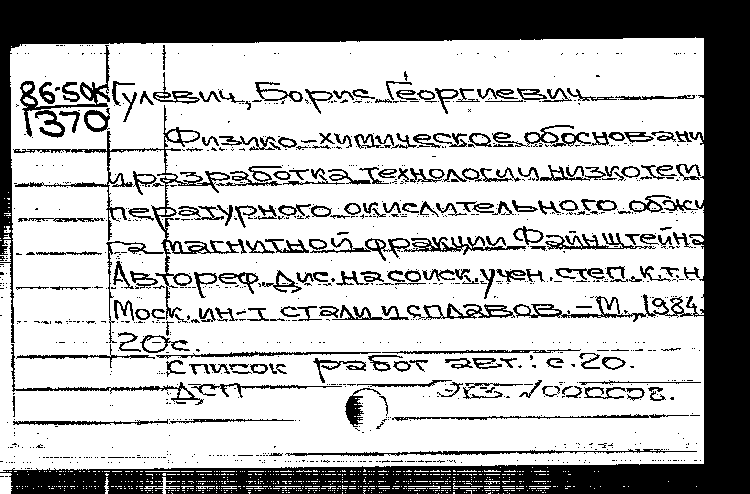 86-50К Гулевич, Борис Георгиевич
1370
Физико-химическое обосновани
и разработка технологии низкотем
пературного окислительного обжи
га магнитной фракции Файнштейна
Автореф. Дис. на соиск. учен. степ. к.т.н.
Моск. ин-т стали и сплавов. – М., 1984.
20 с.
Список работ авт.: с. 20.
ДСП Экз. №